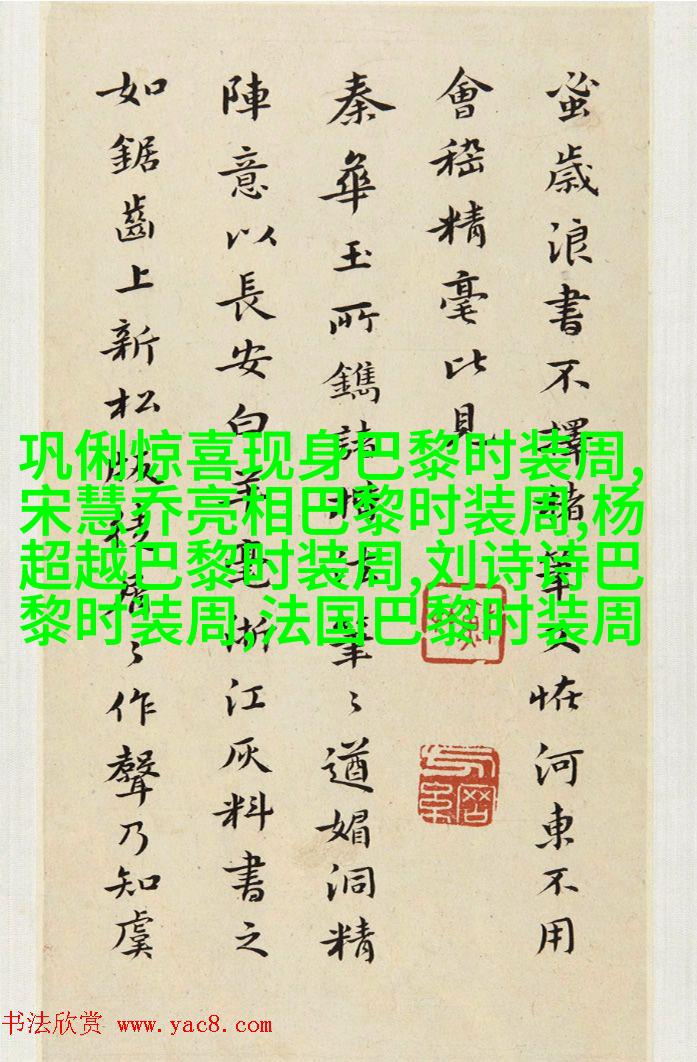 蚤歲浪書不擇諸筆久恠河東不用
會稽精毫此見
秦華玉所鐫諸 筆〻遒媚洞精
陣意以長安白羊毫浙江灰料書之
如鋸齒上新松 〻作聲乃知虞
巩俐惊喜现身巴黎时装周,
宋慧乔亮相巴黎时装周,杨
超越巴黎时装周,刘诗诗巴
黎时装周,法国巴黎时装周
书法欣赏 www.yac8.com